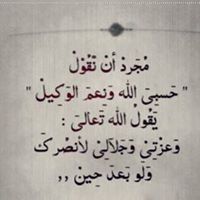 مُجَرَدْ أنْ تَقُوْلْ
" حَسبِيَ الله وَنِعمَ الوَكِيلْ "
يَقُولُ الله تَعالىَ :
وَعزَتِيْ وَجَلآلِيْ لأنصُركَ
وَلو بَعدَ حِينْ ,,